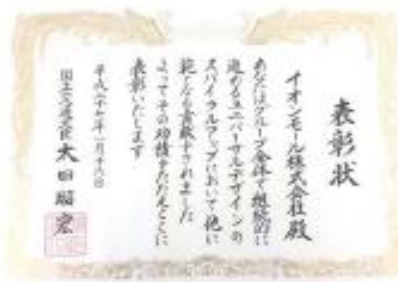 表彰状
イオンモール株式会社殿
あなたはグループ全体で継続的に
進めるユニバーサルデザインの
スパイラルアップにおいて他に
範となる貢献をされました
よってその功績をたたえここに
表彰いたします
平成二十七年一月十六日
国土交通大臣 太田昭宏